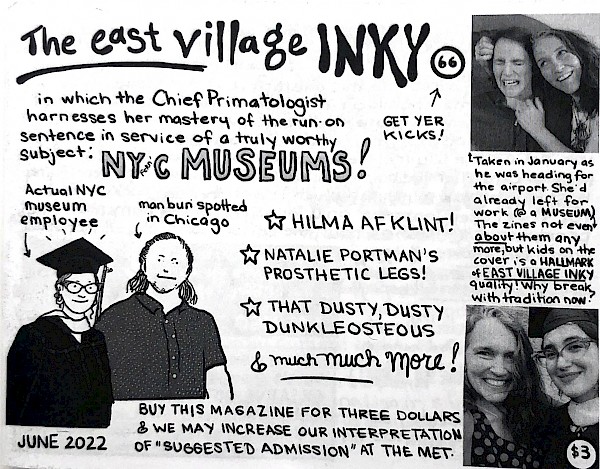 The east village INKY 66
GET YER
KICKS!
in which the Chief Primatologist
harnesses her mastery of the run-on
sentence in service of a truly worthy
subject: NY C MUSEUMS!
Actual NYC
museum
employee
man bun spotted
in Chicago
☆ HILMA AF KLINT!
☆ NATALIE PORTMAN'S
PROSTHETIC LEGS!
☆ THAT DUSTY, DUSTY
DUNKLEOSTEOUS
& much much More!
BUY THIS MAGAZINE FOR THREE DOLLARS
& WE MAY INCREASE OUR INTERPRETATION
OF "SUGGESTED ADMISSION" AT THE MET.
JUNE 2022
Taken in January as
he was heading for
the airport. She'd
already left for
work (@ a MUSEUM)
The zines not even
about them any
more, but kids on the
cover is a HALLMARK
of EAST VILLAGE INKY
quality! Why break
with tradition now?
$3